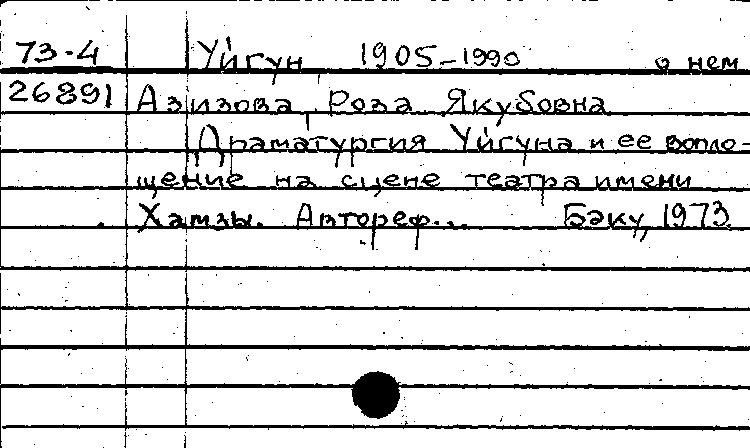 73-4 Уйгун 1905-1990 о нем
26891 Азизова, Роза Якубовна
Драматургия Уйгуна и ее вопло-
щение на сцене театра имени
Хамзы. Автореф... Баку, 1973